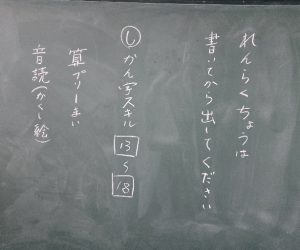 れんらくちょうは
書いてから出してください
し かん字スキル 13〜18
算プリ1まい
音読(かくし絵)